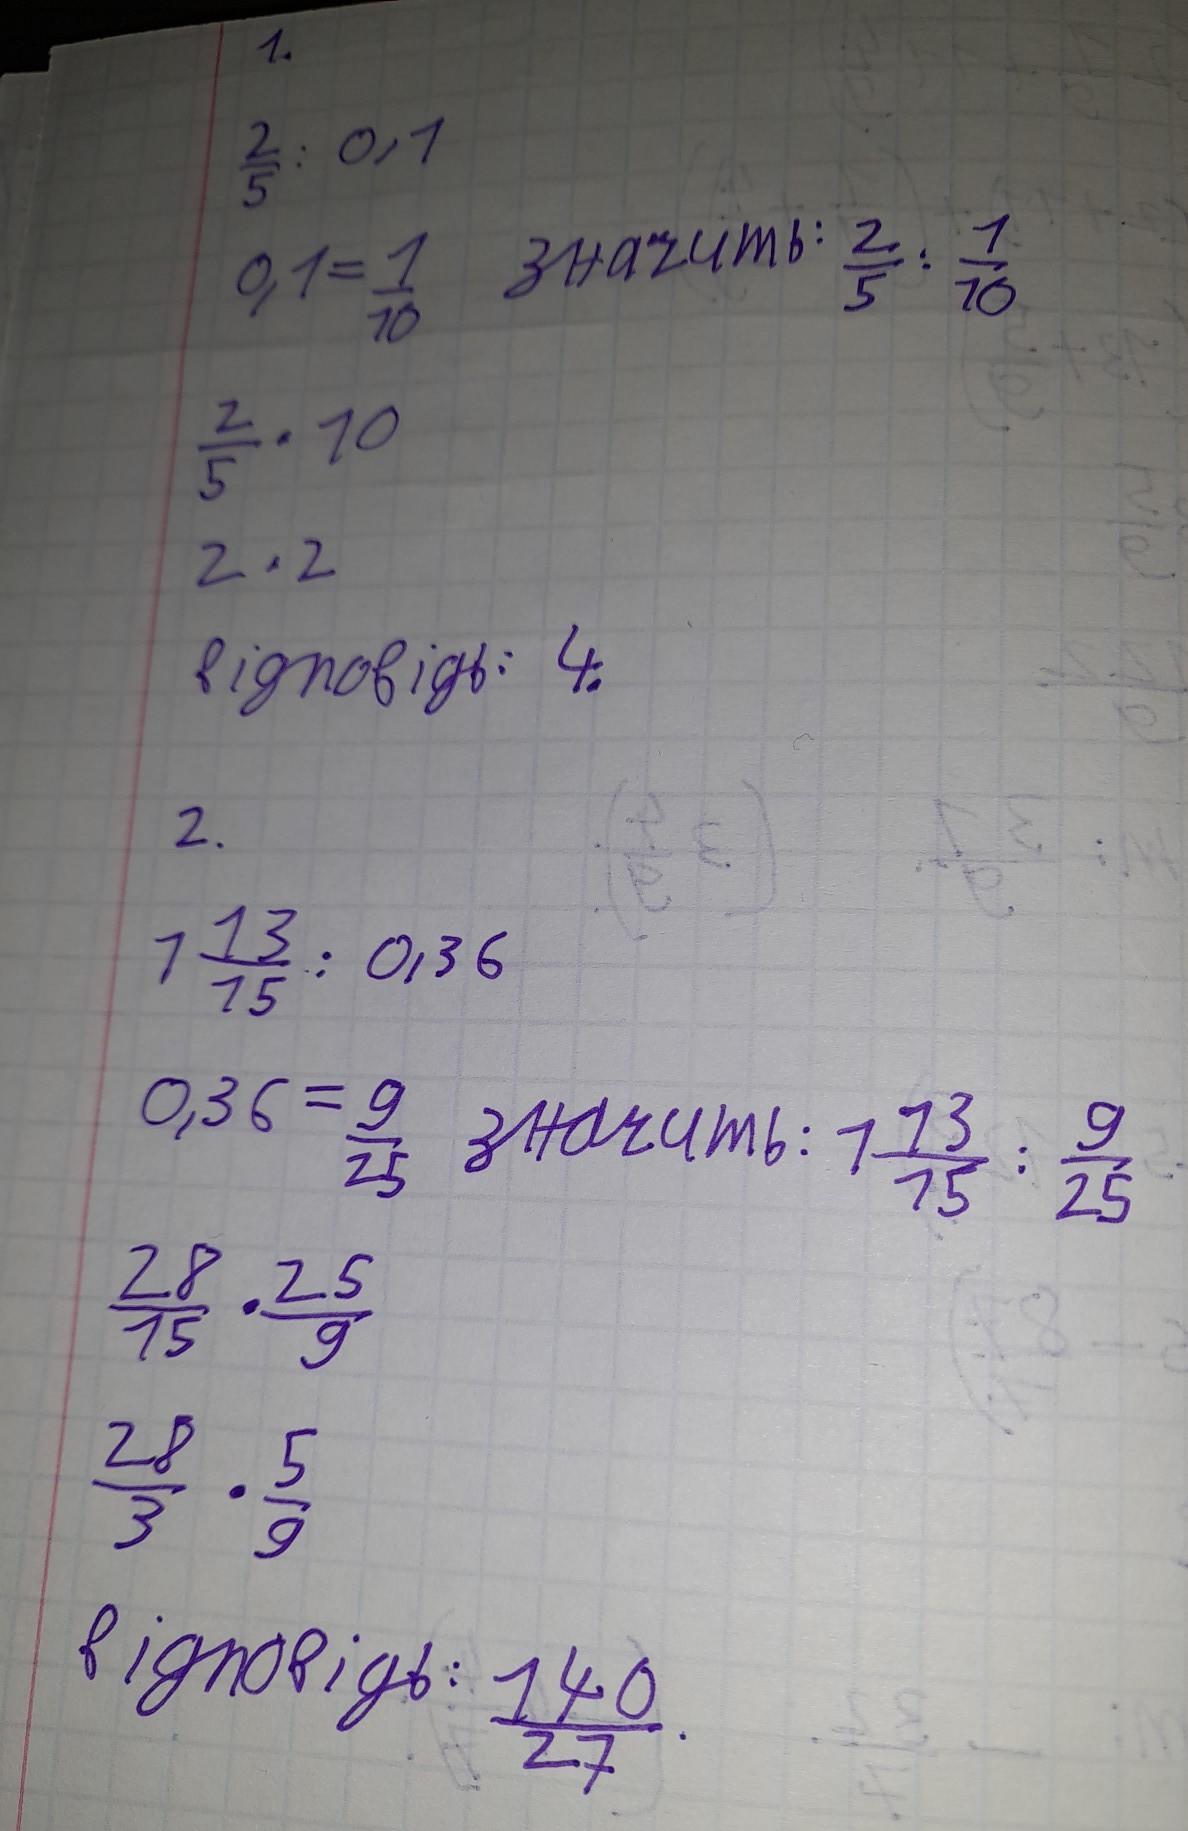 1.
2/5 : 0,1
0,1 = 1/10 значить: 2/5 : 1/10
2/5 · 10
2 · 2
відповідь: 4.
2.
1 13/15 : 0,36
0,36 = 9/25 значить: 1 13/15 : 9/25
28/15 · 25/9
28/3 · 5/9
відповідь: 140/27.